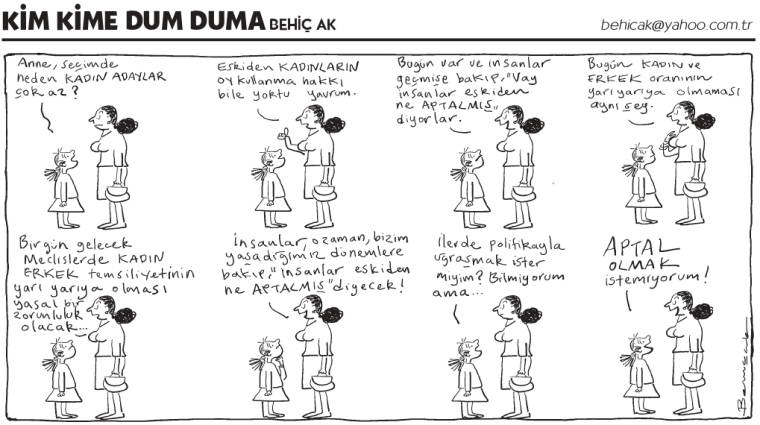 KİM KİME DUM DUMA BEHİÇ AK
behicak@yahoo.com.tr
Anne, seçimde
neden KADIN ADAYLAR
çok az?
Eskiden KADINLARIN
oy kullanma hakkı
bile yoktu yavrum.
Bugün var ve insanlar
geçmişe bakıp, "Vay
insanlar eskiden
ne APTALMIŞ"
diyorlar.
Bugün KADIN ve
ERKEK oranının
yarı yarıya olmaması
aynı şey.
Bir gün gelecek
Meclislerde KADIN
ERKEK temsiliyetinin
yarı yarıya olması
yasal bir
zorunluluk
olacak...
İnsanlar, o zaman, bizim
yaşadığımız dönemlere
bakıp, "insanlar eskiden
ne APTALMIŞ" diyecek!
İlerde politikayla
uğraşmak ister
miyim? Bilmiyorum
ama...
APTAL
OLMAK
istemiyorum!